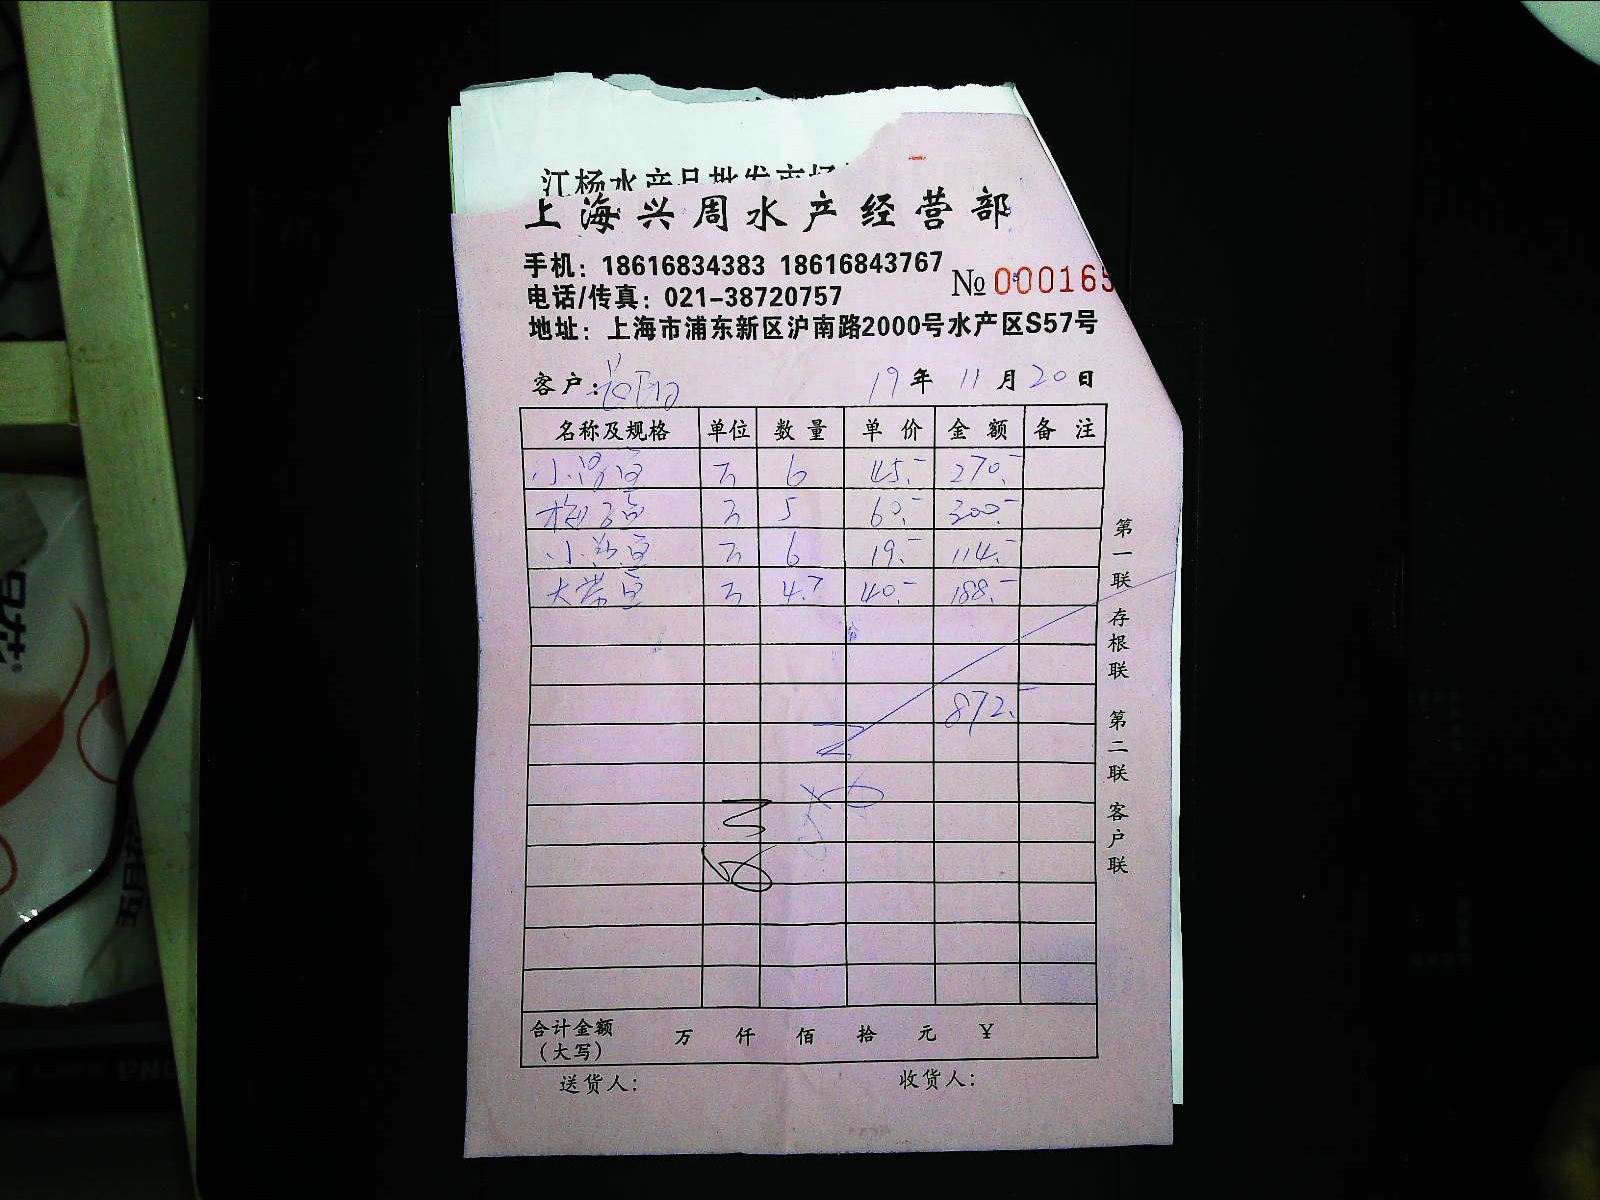 江杨水产品批发市场
上海兴周水产经营部
手机：18616834383 18616843767
№ 000165
电话/传真：021-38720757
地址：上海市浦东新区沪南路2000号水产区S57号
客户：
19年 11月 20日
名称及规格 单位 数量 单价 金额 备注
小 6 45.- 270.-
梅子鱼 5 60.- 300.-
小 鱼 6 19.- 114.-
大 鱼 4.7 40.- 188.-
872.-
合计金额（大写） 万 仟 佰 拾 元 ¥
送货人： 收货人：
第一联 存根联 第二联 客户联